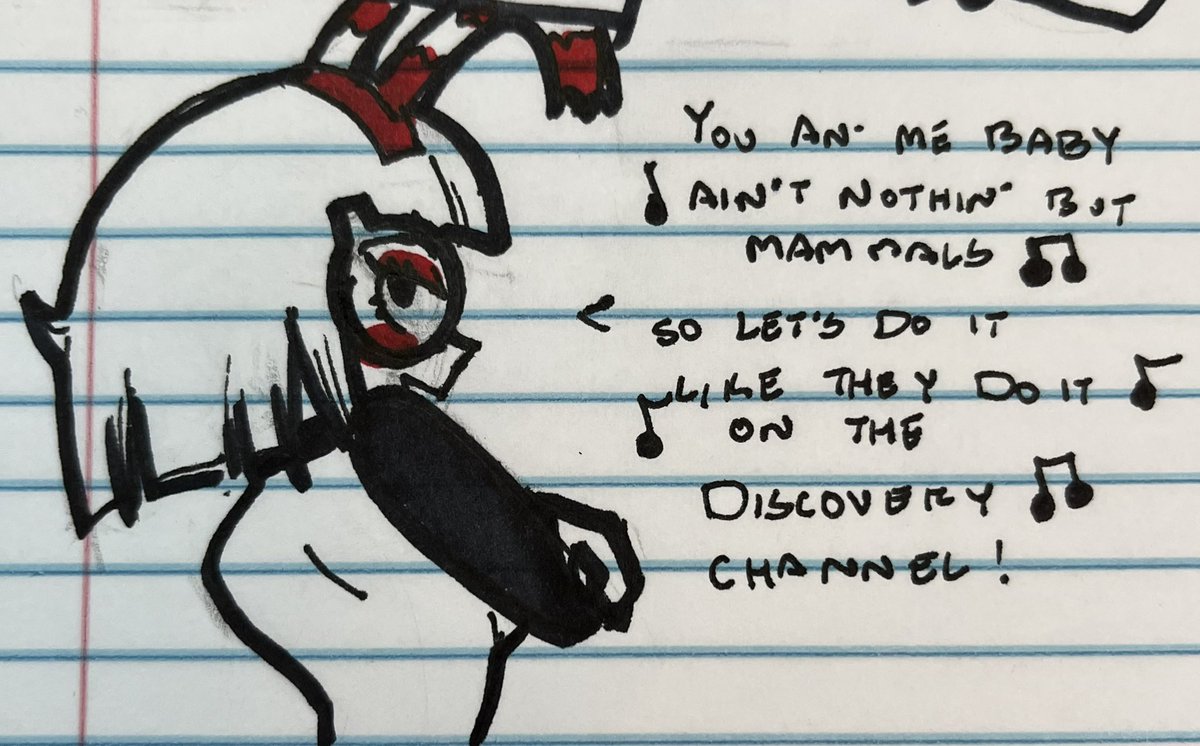 YOU AN' ME BABY
AIN'T NOTHIN' BUT
MAMMALS
SO LET'S DO IT
LIKE THEY DO IT
ON THE
DISCOVERY
CHANNEL!